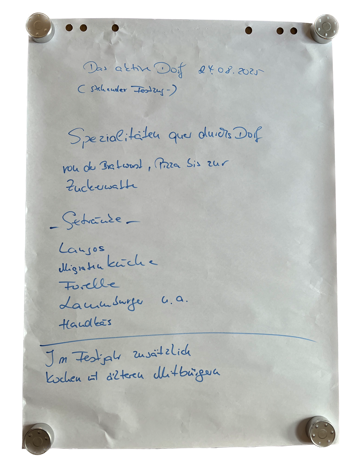 Das aktive Dorf 24.08.2025
(stehender Festzug)
Spezialitäten quer durchs Dorf
von der Bratwurst, Pizza bis zur
Zuckerwatte
- Getränke -
Langos
Migrantenküche
Forelle
Lammburger u. a.
Handkäs
Im Festjahr zusätzlich
Kochen mit älteren Mitbürgern